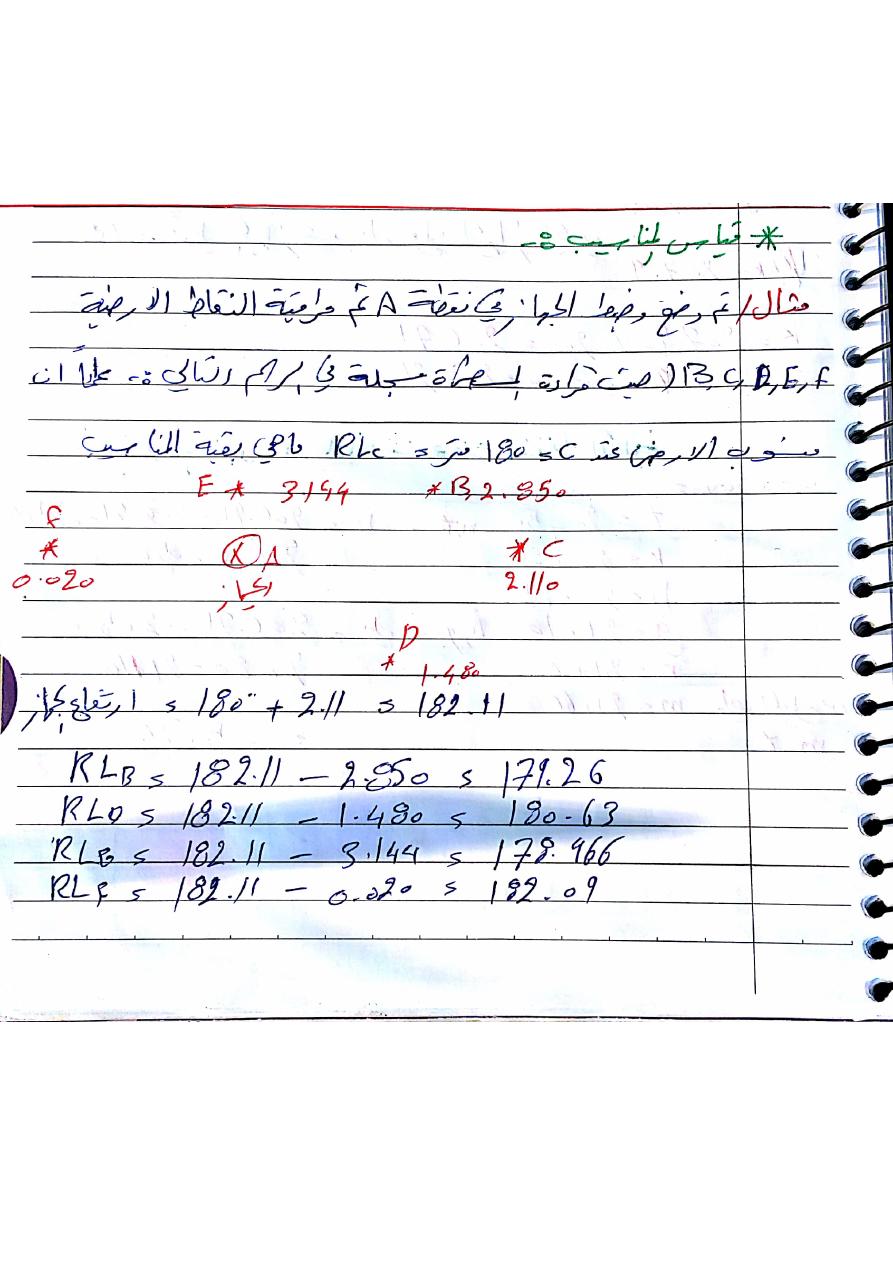 * قياس المناسيب :-
مثال/ تم وضع وضبط الجهاز في نقطة A تم مراقبة النقاط الارضية
B, C, D, E, F) حيث قراءة المسطرة مسجلة في الرسم التالي :- علماً ان
منسوب الارض عند C = 180 متر = RLc ما هي بقية المناسيب
E * 3.144 * B 2.850
F
* (X) A * C
0.020 الجهاز 2.110
D
* 1.480
ارتفاع الجهاز = 180 + 2.11 = 182.11
RLB = 182.11 - 2.850 = 179.26
RLD = 182.11 - 1.480 = 180.63
RLE = 182.11 - 3.144 = 178.966
RLF = 182.11 - 0.020 = 182.09